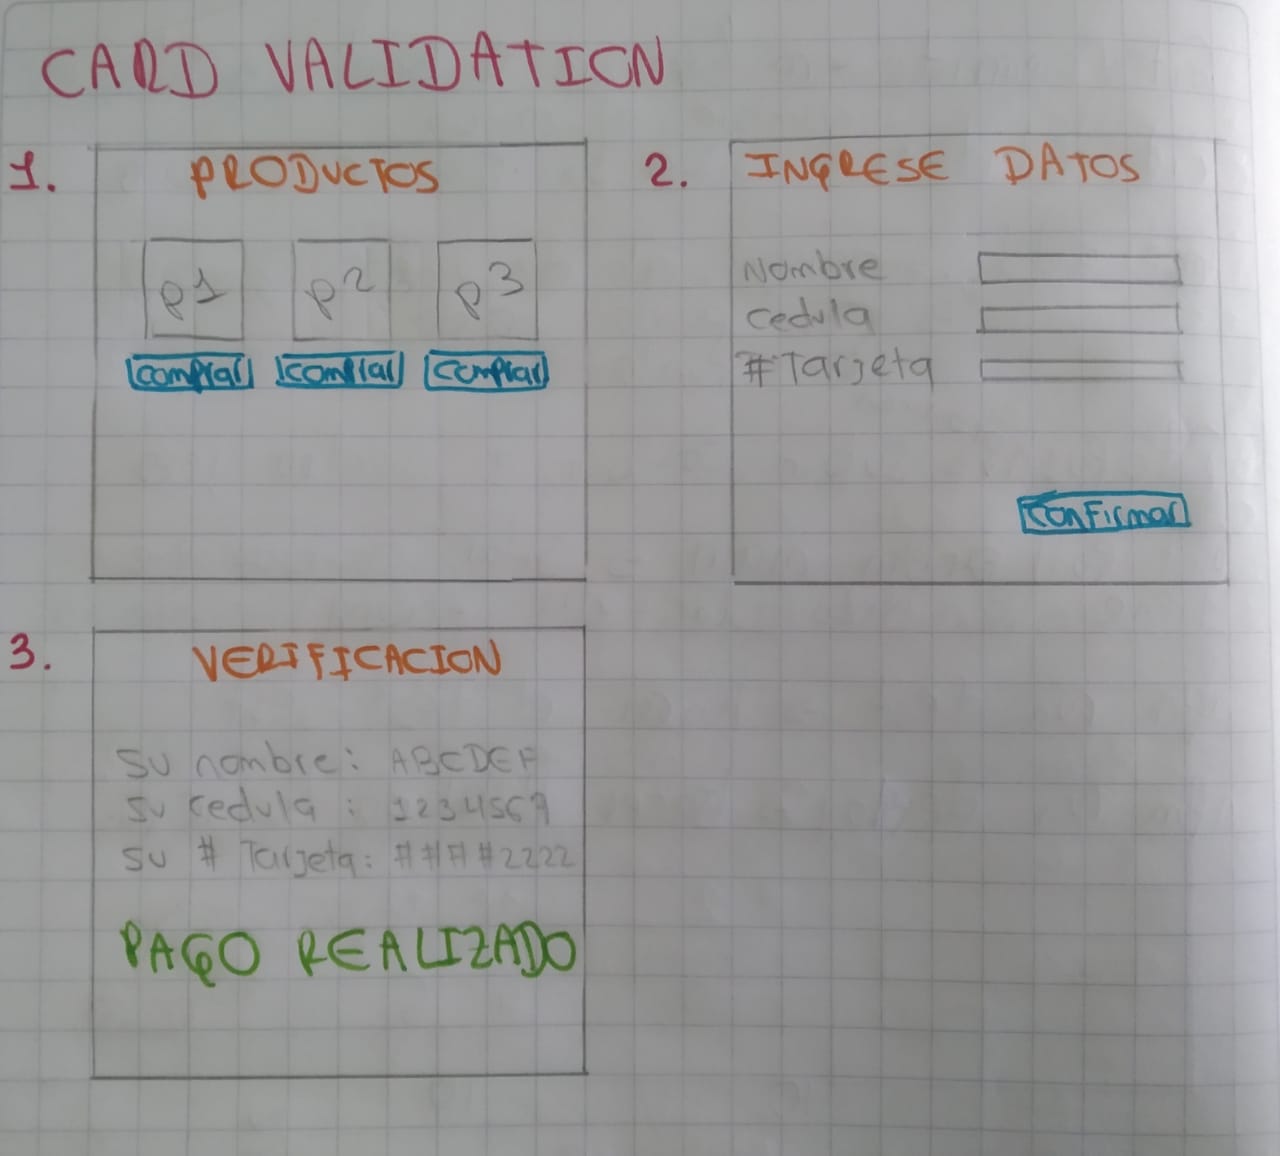 CARD VALIDATION
1.
PRODUCTOS
P1 P2 P3
comprar comprar comprar
2.
INGRESE DATOS
Nombre
cedula
#Tarjeta
confirmar
3.
VERIFICACION
Su nombre: ABCDEF
Su cedula : 1234567
Su # Tarjeta: ####2222
PAGO REALIZADO